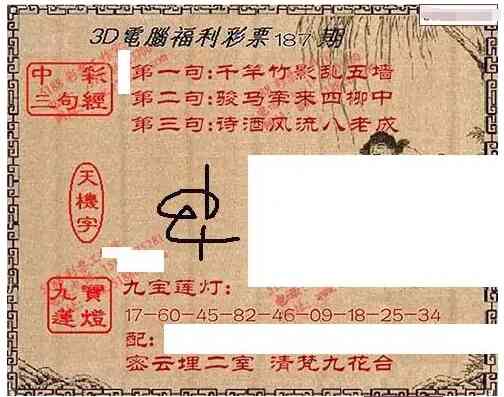 3D電腦福利彩票187期
中彩
三句經
第一句:千竿竹影乱五墙
第二句:骏马牵来四柳中
第三句:诗酒风流八老成
天機字
九寶
蓮燈
九宝莲灯:
17-60-45-82-46-09-18-25-34
配:
密云埋二室 清梵九花台